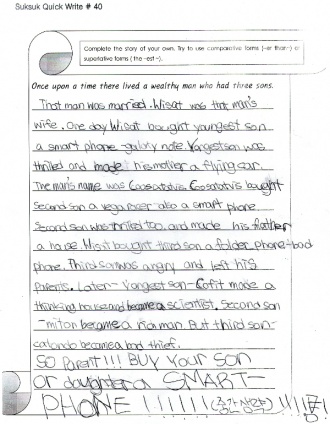 Suksuk Quick Write # 40
Complete the story of your own. Try to use comparative forms (-er than~) or
superlative forms ( the -est ~).
Once upon a time there lived a wealthy man who had three sons.
That man was married. Wisat was that man's
wife. One day Wisat bought youngest son
a smart phone - galaxy note. Yongest son was
thriled and made his mother a flying car.
The man's name was bought
Second son a vega racer also a smart phone.
Second son was thrilled too, and made his father
a house. Wisat bought third son a folder phone - bad
phone. Third son was angry and left his
parents. Later - Yongest son - Cofit made a
thinking house and became a scientist. Second son
- miton became a rich man. But third son -
catondo became a bad thief.
SO Parent!!! BUY Your SON
or daughter a SMART-
PHONE !!!!!!(중간생략)!!!!